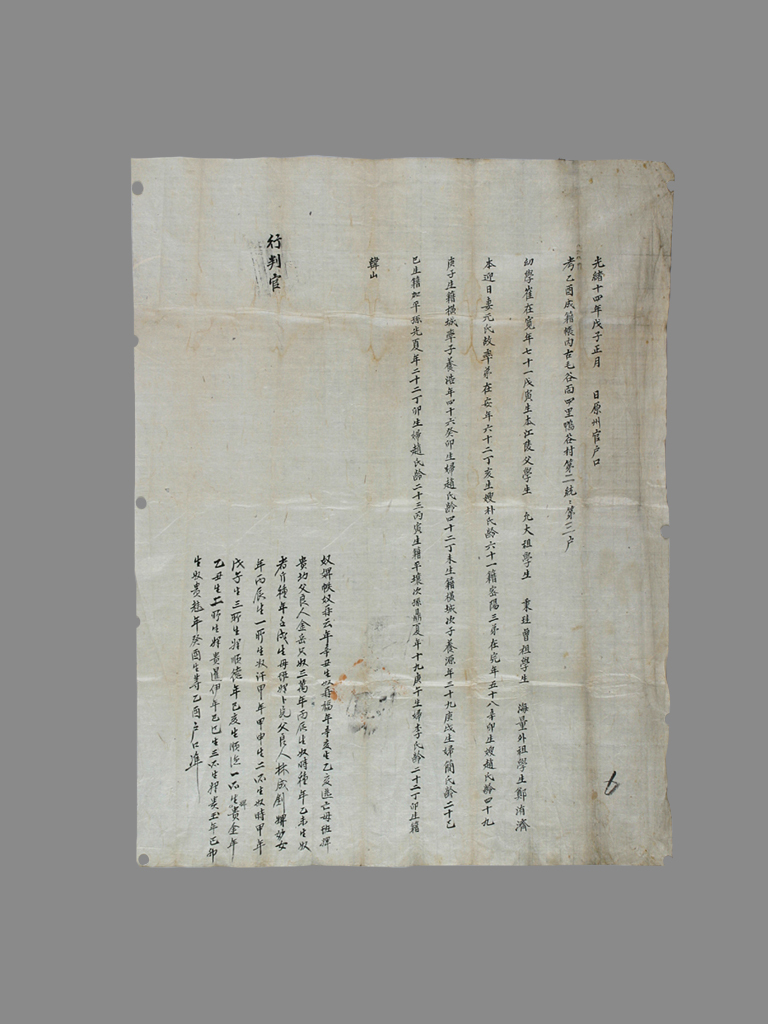 光緒十四年戊子正月 日原州官戶口
考乙酉成籍帳內古毛谷面四里鴨谷村第二統:第三戶
幼學崔在寬年七十一戊寅生本江陵父學生 九大祖學生 秉珪曾祖學生 海量外祖學生鄭洧濟
本迎日妻元氏故率弟在安年六十二丁亥生嫂朴氏齡六十一籍密陽三弟在完年五十八辛卯生嫂趙氏齡四十九
庚子生籍橫城率子養浩年四十六癸卯生婦趙氏齡四十二丁未生籍橫城次子養源年三十九庚戌生婦簡氏齡二十己
巳生籍加平孫光夏年二十二丁卯生婦趙氏齡二十三丙寅生籍平壤次孫鼎夏年十九庚午生婦李氏齡二十二丁卯生籍
韓山
行判官
奴婢秩奴再云年辛丑生奴再福年辛亥生乙亥逃亡母班婢
貴功父良人金岳只奴三萬年丙辰生奴時種年乙未生奴
者斤種年壬戌生母班婢卜見父良人林成創婢妙女
年丙辰生一所生奴汗甲年甲申生二所生奴時甲年
戊午生三所生婢順德年己亥生順德一所生婢貴金年
乙丑生二所生婢貴進伊年己巳生三所生婢貴玉年己卯
生奴貴龍年癸酉生等乙酉戶口準
6